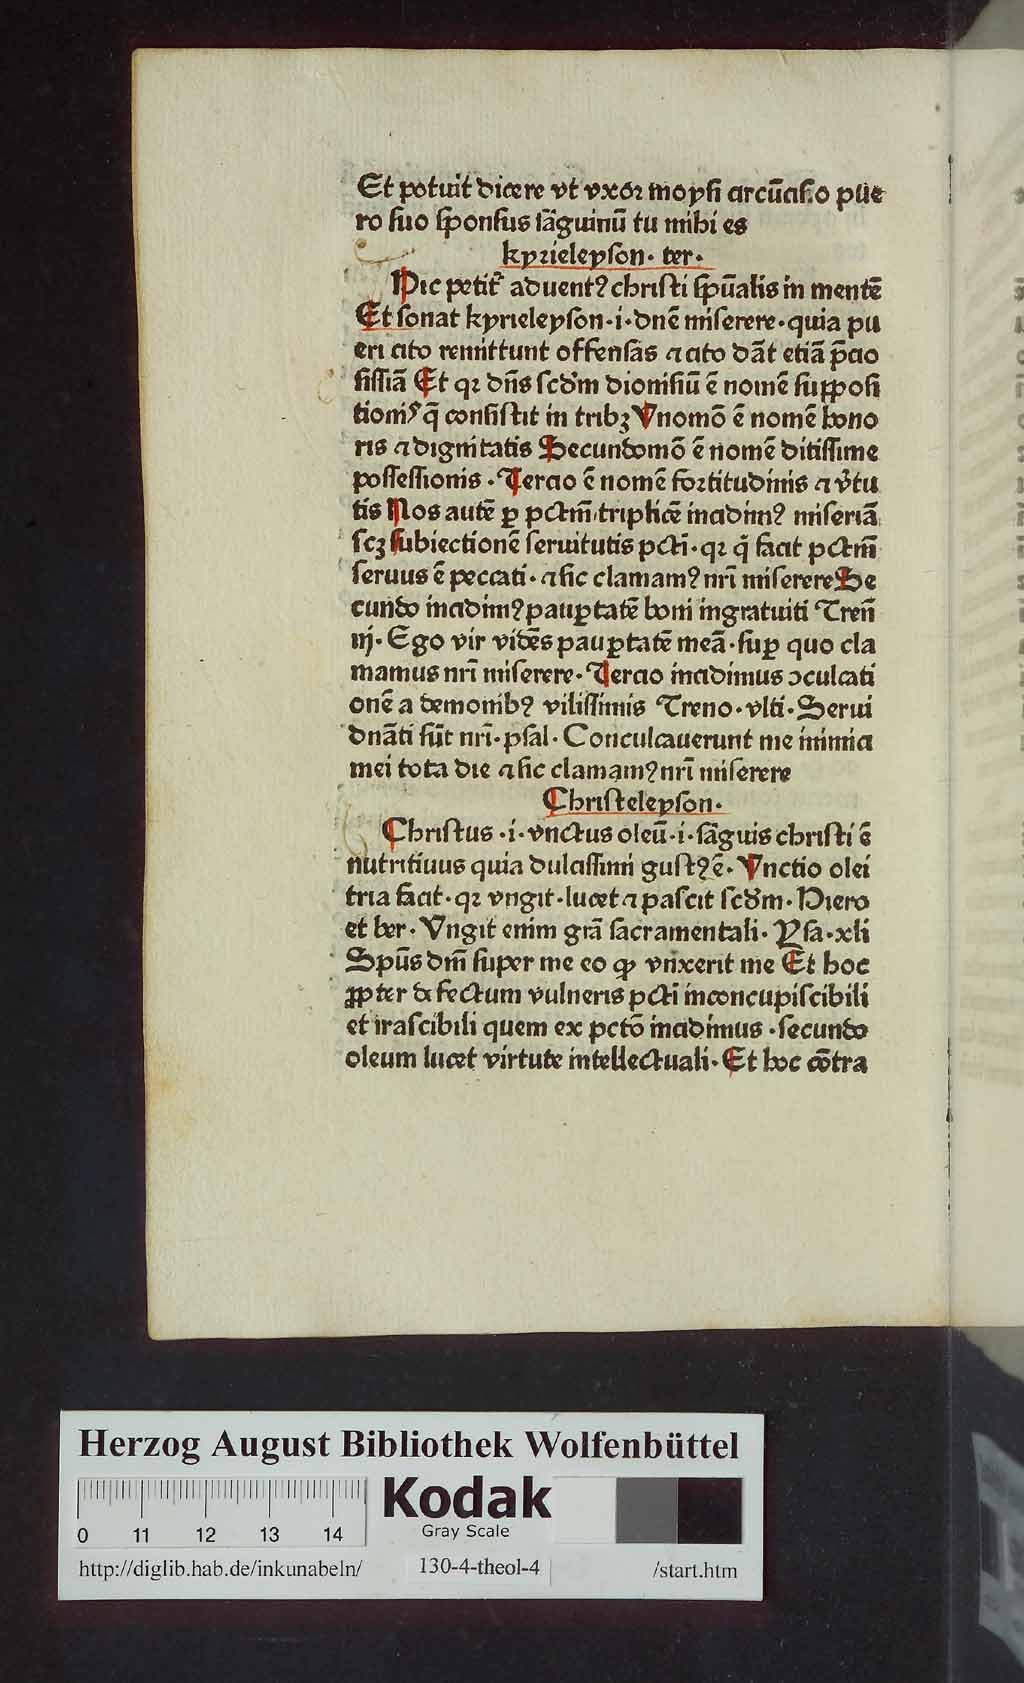 Et potuit dicere vt vxor moysi circūciso pue
ro suo sponsus sāguinū tu mihi es
kyrieleyson. ter.
Hic petitᷣ aduentꝰ christi spūalis in mentē
Et sonat kyrieleyson .i. dn̄e miserere. quia pu
eri cito remittunt offensas ⁊ cito dāt etiā p̄cio
sissiā Et qꝛ dn̄s scd'm dionisiū ē nomē supposi
tionis q̄ consistit in tribꝫ Vnomō ē nomē hono
ris ⁊ dignitatis Secundomō ē nomē ditissime
possessionis. Tercio ē nomē fortitudinis ⁊ v'tu
tis Nos autē ꝑ pctm̄ triplicē incidimꝰ miseriā
scꝫ subiectionē seruitutis pcti. qꝛ q̇ facit pctm̄
seruus ē peccati. ⁊ sic clamamꝰ nr̄i miserere Se
cundo incidimꝰ pauꝑtatē boni ingratuiti Tren̄
iij. Ego vir vidēs pauꝑtatē meā. suꝑ quo cla
mamus nr̄i miserere. Tercio incidimus ↄculcati
onē a demonibꝰ vilissimis Treno. vlti. Serui
dn̄ati sūt nr̄i. psal. Conculcauerunt me inimici
mei tota die ⁊ sic clamamꝰ nr̄i miserere
Christeleyson.
Christus .i. vnctus oleū .i. sāguis christi ē
nutritiuus quia dulcissimi gustꝰ ē. Vnctio olei
tria facit. qꝛ vngit. lucet ⁊ pascit scd'm. Hiero
et ber. Vngit enim grā sacramentali. Ysa. xli
Spūs dn̄i super me eo ꝙ vnxerit me Et hoc
ꝓpter defectum vulneris pcti inconcupiscibili
et irascibili quem ex pctō incidimus. secundo
oleum lucet virtute intellectuali. Et hoc cōtra
Herzog August Bibliothek Wolfenbüttel
0 11 12 13 14
Kodak
Gray Scale
http://diglib.hab.de/inkunabeln/ 130-4-theol-4 /start.htm